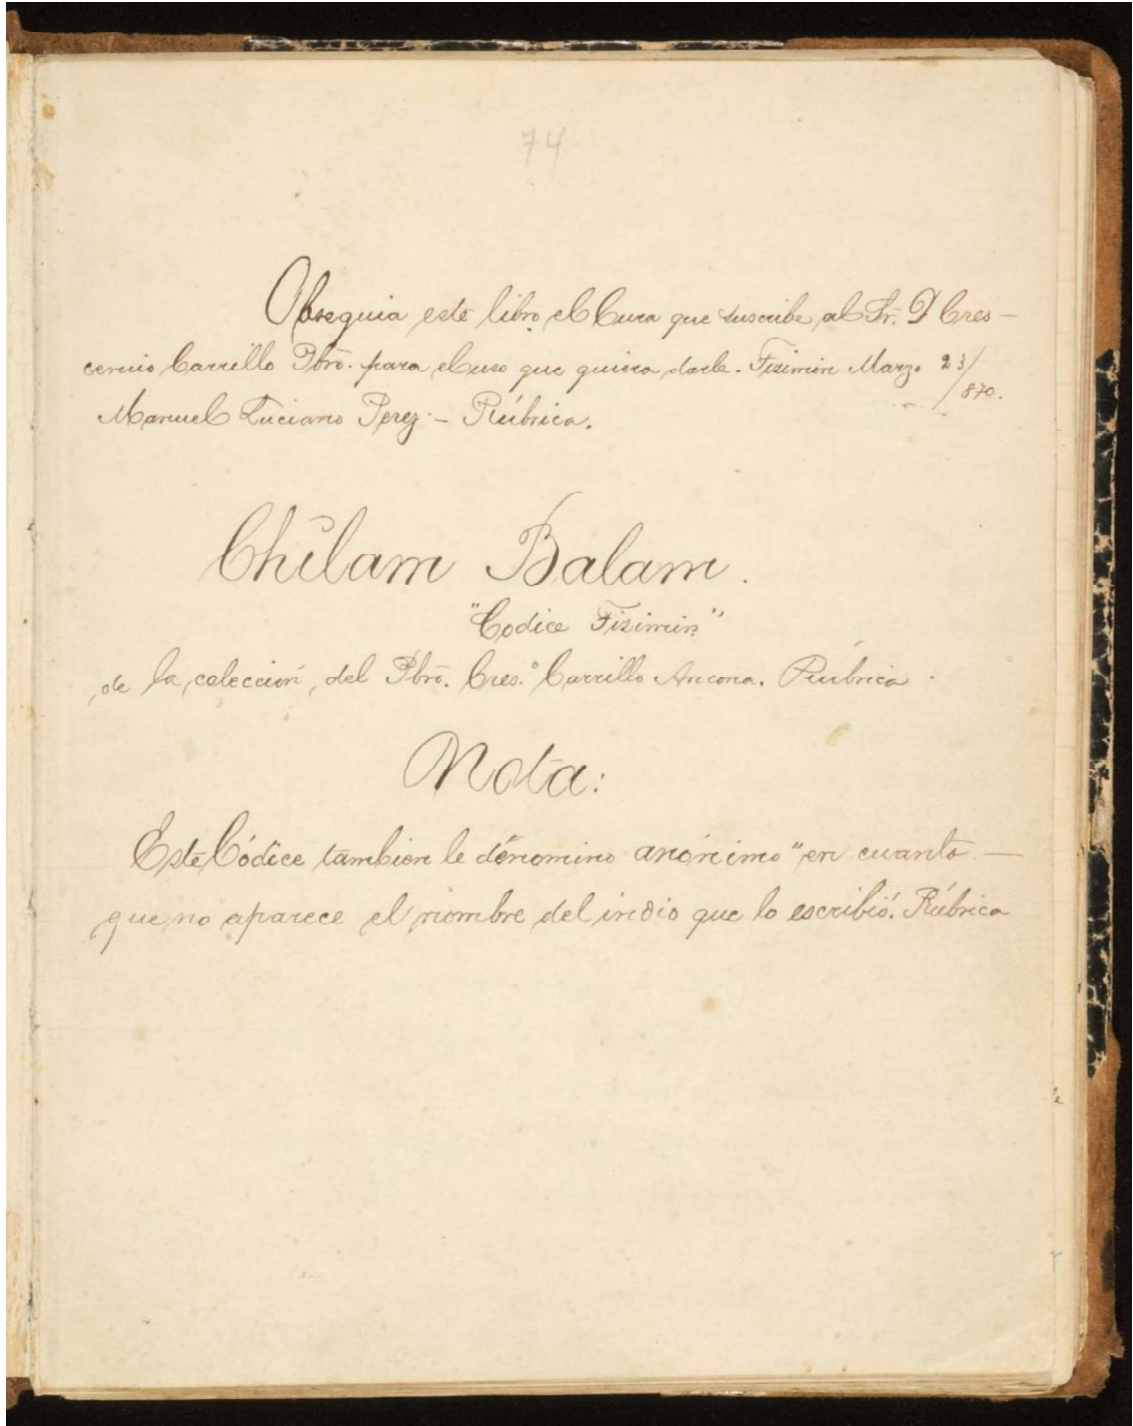 74
Obsequia este libro el Cura que suscribe al Sr. D Cres-
cencio Carrillo Pbro. para el uso que quiera darle. Tizimin Marzo 23/870.
Manuel Luciano Perez - Rúbrica.
Chilam Balam.
"Codice Tizimin"
de la colección del Pbro. Cres.º Carrillo Ancona. Rúbrica.
Nota:
Este Códice tambien le denomino anónimo" en cuanto -
que no aparece el nombre del indio que lo escribió. Rúbrica